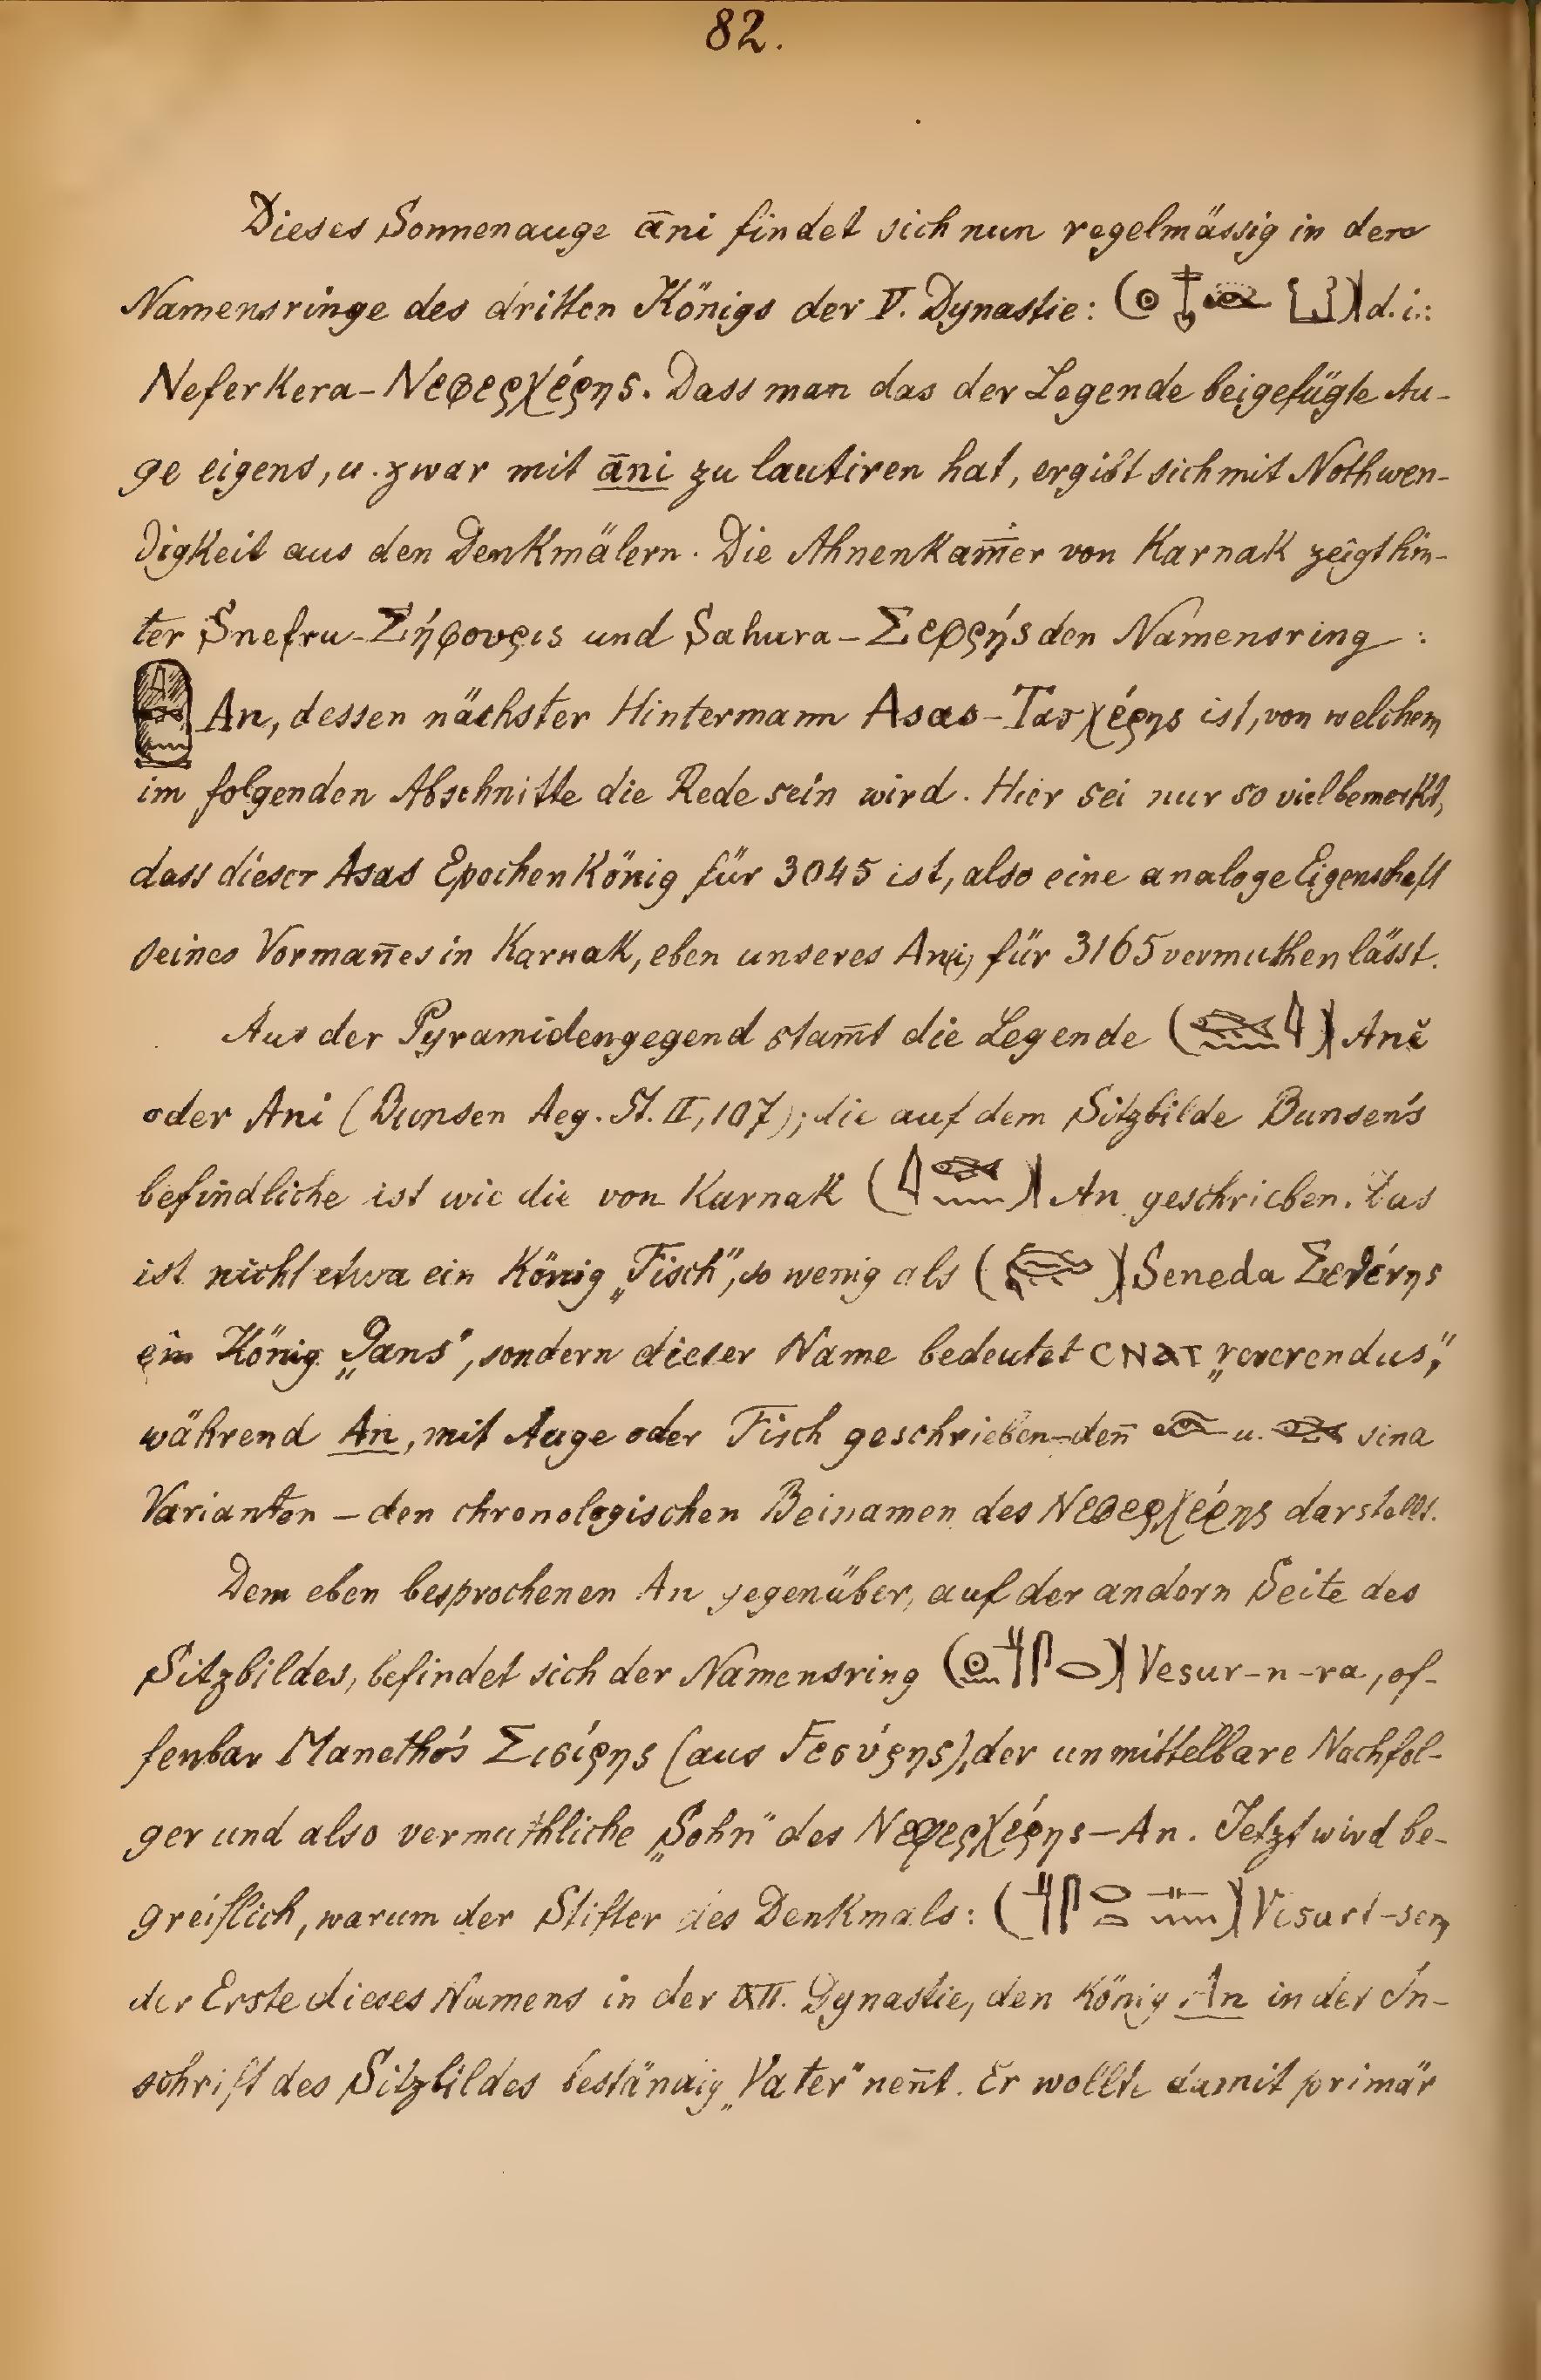 82.
Dieses Sonnenauge āni findet sich nun regelmässig in dem
Namensringe des dritten Königs der V. Dynastie: d. i.:
Neferkera - Νεφερχέρης. Dass man das der Legende beigefügte Au-
ge eigens, u. zwar mit āni zu lautiren hat, ergibt sich mit Nothwen-
digkeit aus den Denkmälern. Die Ahnenkam̅er von Karnak zeigt hin-
ter Snefru - Σήφουρις und Sahura - Σεφρής den Namensring :
An, dessen nächster Hintermann Asas - Τασχέρης ist, von welchem
im folgenden Abschnitte die Rede sein wird. Hier sei nur so viel bemerkt,
dass dieser Asas Epochenkönig für 3045 ist, also eine analoge Eigenschaft
seines Vorman̅es in Karnak, eben unseres An(i) für 3165 vermuthen lässt.
Aus der Pyramidengegend stam̅t die Legende Anĕ
oder Ani (Bunsen Aeg. St. II, 107); die auf dem Sitzbilde Bunsen's
befindliche ist wie die von Karnak An geschrieben. Das
ist nicht etwa ein König „Fisch", so wenig als Seneda Σεθένης
ein König „Gans", sondern dieser Name bedeutet CNAT „reverendus",
während An, mit Auge oder Fisch geschrieben - den̅ u. sind
Varianten - den chronologischen Beinamen des Νεφερχέρης darstellt.
Dem eben besprochenen An gegenüber, auf der andern Seite des
Sitzbildes, befindet sich der Namensring Vesur-n-ra, of-
fenbar Manetho's Σισίρης (aus Ϝεσύρης), der unmittelbare Nachfol-
ger und also vermuthliche „Sohn" des Νεφερχέρης - An. Jetzt wird be-
greiflich, warum der Stifter des Denkmals: Vesurt-sen,
der Erste dieses Namens in der XII. Dynastie, den König An in der In-
schrift des Sitzbildes beständig „Vater" nen̅t. Er wollte damit primär